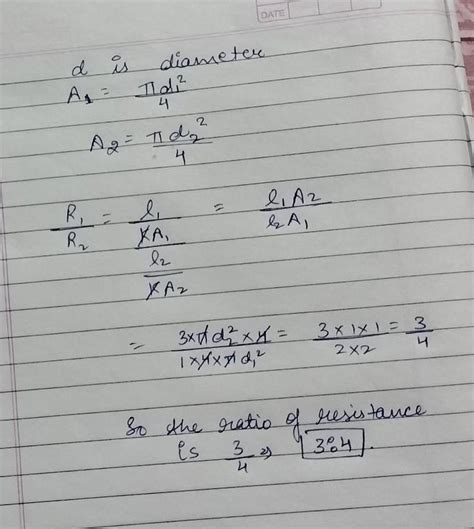 DATE
d is diameter
A₁ = πd₁²/4
A₂ = πd₂²/4
R₁/R₂ = (l₁/KA₁)/(l₂/KA₂) = l₁A₂/l₂A₁
= 3×πd₂²×4/1×4×πd₁² = 3×1×1/2×2 = 3/4
So the ratio of resistance
is 3/4 ⇒ 3:4.